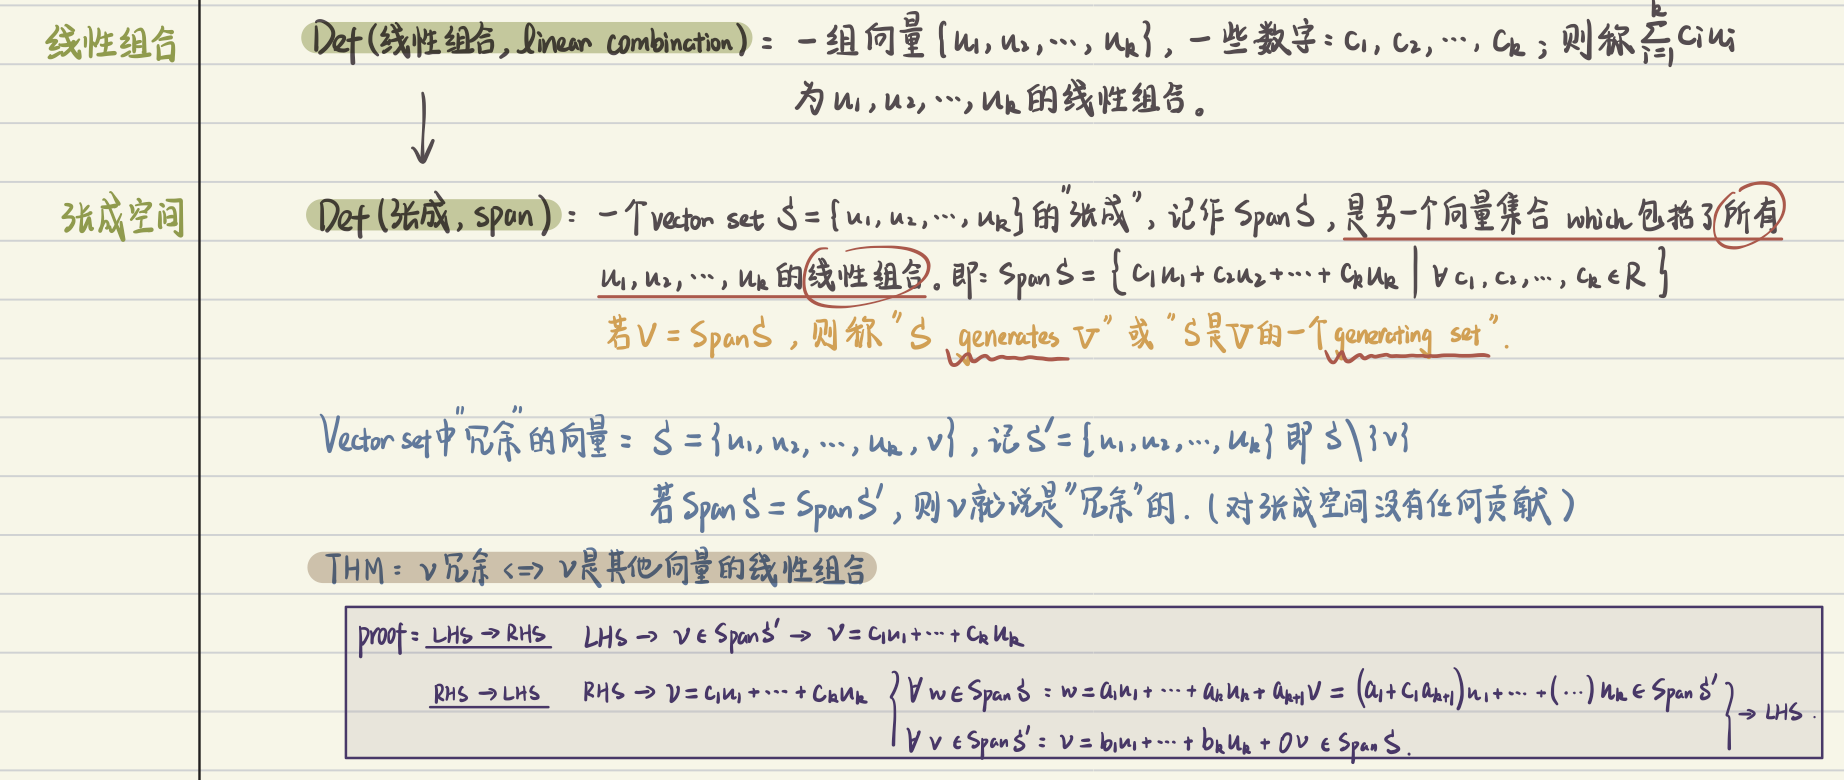 线性组合
Def(线性组合, linear combination): 一组向量{u₁, u₂, ···, uₖ}, 一些数字: c₁, c₂, ···, cₖ; 则称 ∑ᵢ₌₁ᵏ cᵢuᵢ
为 u₁, u₂, ···, uₖ 的线性组合。
↓
张成空间
Def(张成, span): 一个vector set S={u₁, u₂, ···, uₖ}的"张成", 记作 Span S, 是另一个向量集合 which 包括了所有
u₁, u₂, ···, uₖ 的线性组合。即: Span S = { c₁u₁ + c₂u₂ + ··· + cₖuₖ | ∀ c₁, c₂, ···, cₖ ∈ R }
若 V = Span S, 则称 "S generates V" 或 "S是V的一个generating set".
Vector set中"冗余"的向量: S = {u₁, u₂, ···, uₖ, v}, 记 S' = {u₁, u₂, ···, uₖ} 即 S\{v}
若 Span S = Span S', 则v就说是"冗余"的. (对张成空间没有任何贡献)
THM: v冗余 <=> v是其他向量的线性组合
proof: LHS → RHS LHS → v ∈ Span S' → v = c₁u₁ + ··· + cₖuₖ
RHS → LHS RHS → v = c₁u₁ + ··· + cₖuₖ { ∀ w ∈ Span S : w = a₁u₁ + ··· + aₖuₖ + aₖ₊₁v = (a₁ + c₁aₖ₊₁)u₁ + ··· + (···)uₖ ∈ Span S'
∀ v ∈ Span S': v = b₁u₁ + ··· + bₖuₖ + 0v ∈ Span S. } → LHS.